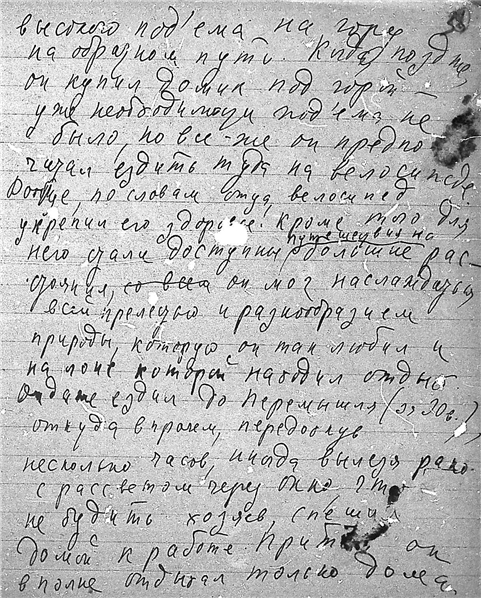 высокого под'ема на гору
на обратном пути. Когда позднее,
он купил домик под горой —
уже необходимости под'ема не
было, но все-же он предпо
читал ездить туда на велосипеде.
Вообще, по словам отца, велосипед
укрепил его здоровье. Кроме того для
него стали доступны путешествия на
большие рас-
стояния, со всем он мог наслаждаться
всей прелестью и разнообразием
природы, которую он так любил и
на лоне которой находил отдых.
Он даже ездил до Перемышля (
откуда впрочем, передохнув
несколько часов, иногда вылезя рано
с рассветом через окно, что
не будить хозяев, спешил
домой к работе. Притом он
вполне отдыхал только дома.